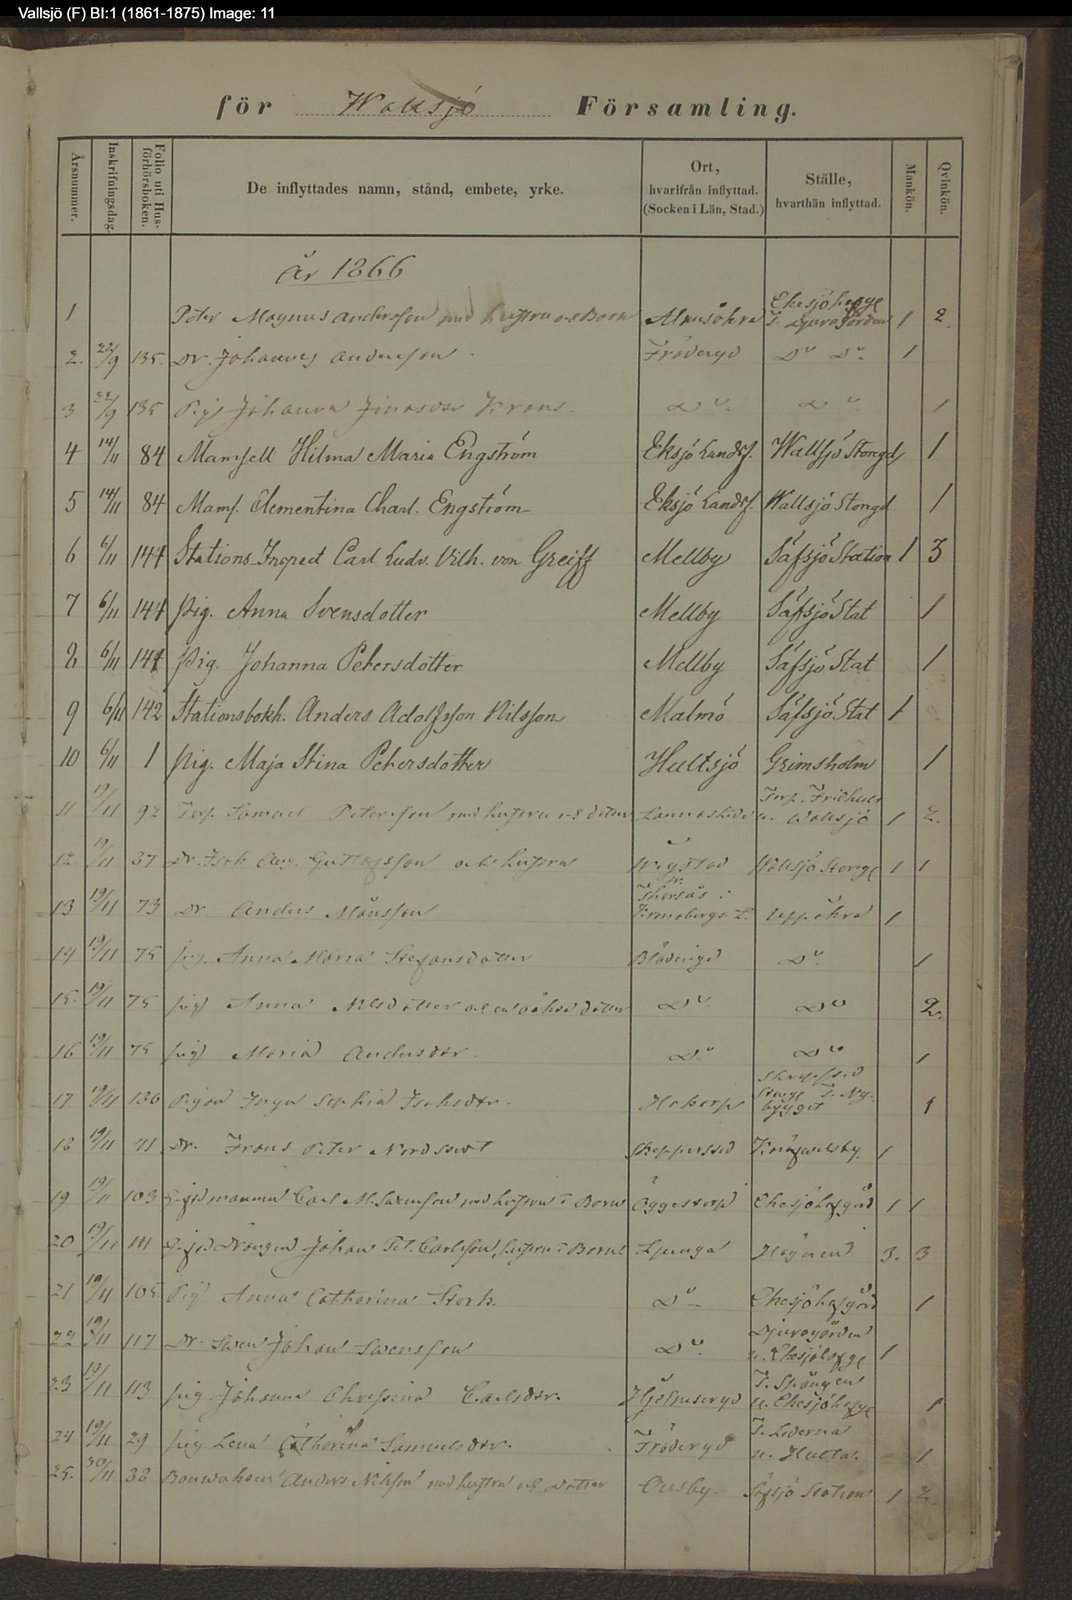 Vallsjö (F) BI:1 (1861-1875) Image: 11
för Wallsjö Församling.
Årsnummer. Inskrifningsdag. Folio uti Hus-förhörsboken. De inflyttades namn, stånd, embete, yrke. Ort, hvarifrån inflyttad. (Socken i Län, Stad.) Ställe, hvarthän inflyttad. Mankön. Qvinkön.
År 1866
1 Peter Magnus Andersson med hustru och Barn Almesåkra Ekesjöhofgd T. Djuregården 1 2
2. 22/9 135. Dr. Johannes Andersson Fröderyd Do Do 1
3 22/9 135 Pig Johanna Jonasdr Krans. Do Do 1
4 14/11 84 Mamsell Hilma Maria Engström Eksjö Landsf. Wallsjö Storegd 1
5 14/11 84 Mams. Clementina Charl. Engström Eksjö Landsf. Wallsjö Storegd 1
6 6/11 144 Stations Inspect Carl Ludv. Vilh. von Greiff Mellby Säfsjö Station 1 3
7 6/11 144 Pig. Anna Svensdotter Mellby Säfsjö Stat 1
8 6/11 144 Pig. Johanna Petersdotter Mellby Säfsjö Stat 1
9 6/11 142 Stationsbokh. Anders Adolfsson Nilsson Malmö Säfsjö Stat 1
10 6/11 1 Pig. Maja Stina Petersdotter Hultsjö Grimsholm 1
11 19/11 92 Torp. Samuel Petersson med hustru och dotter Lannaskede Torp. Fridhult u. Wallsjö 1 2.
12. 19/11 37 Dr. Isak Aug. Gustafsson och hustru Wrigstad Wallsjö Storegd 1 1
13 19/11 73 Dr. Anders Månsson Thorsås i Kronobergs L. Uppåkra 1
14 19/11 75 Pig. Anna Maria Stefansdotter Bäckseda Do 1
15. 19/11 75 Pig Anna Nilsdotter och en oäkta dotter Do Do 2.
16 19/11 75 Pig Maria Andersdr. Do Do 1
17 19/11 136 Pigan Inga Sophia Isaksdr. Hakarp Storegd T. Nybygget 1
18 19/11 71 Dr. Frans Peter Nordqvist Skepperstad Knapasby 1
19 19/11 103 Gifte mannen Carl M. Svensson med hustru o Barn Öggestorp Ekesjöhofgård 1 1
20 19/11 111 Gifte Drängen Johan Pet. Carlsson, hustru o Barn Ljunga Högnen 3. 3
21 19/11 105 Pig Anna Catharina Stork Do Ekesjöhofgård 1
22 19/11 117 Dr. Sven Johan Svensson Do Djuregården u. Ekesjöhofgd 1
23 19/11 113 Pig Johanna Christina Carlsdr. Hjelmseryd T. Spången u. Ekesjöhofgd 1
24 19/11 29 Pig Lena Catharina Samuelsdr. Fröderyd T. Lederna u. Hulta. 1
25. 30/11 38 Banvakten Anders Nilsson med hustru och dotter Ousby. Säfsjö Station 1 2.